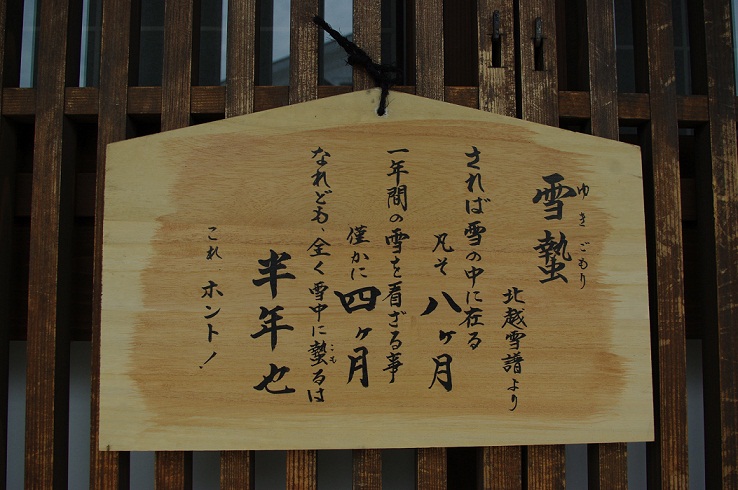 雪蟄
ゆきごもり
北越雪譜より
されば雪の中に在る
凡そ八ヶ月
一年間の雪を看ざる事
僅かに四ヶ月
なれども、全く雪中に蟄るは
こも
半年也
これ ホント！